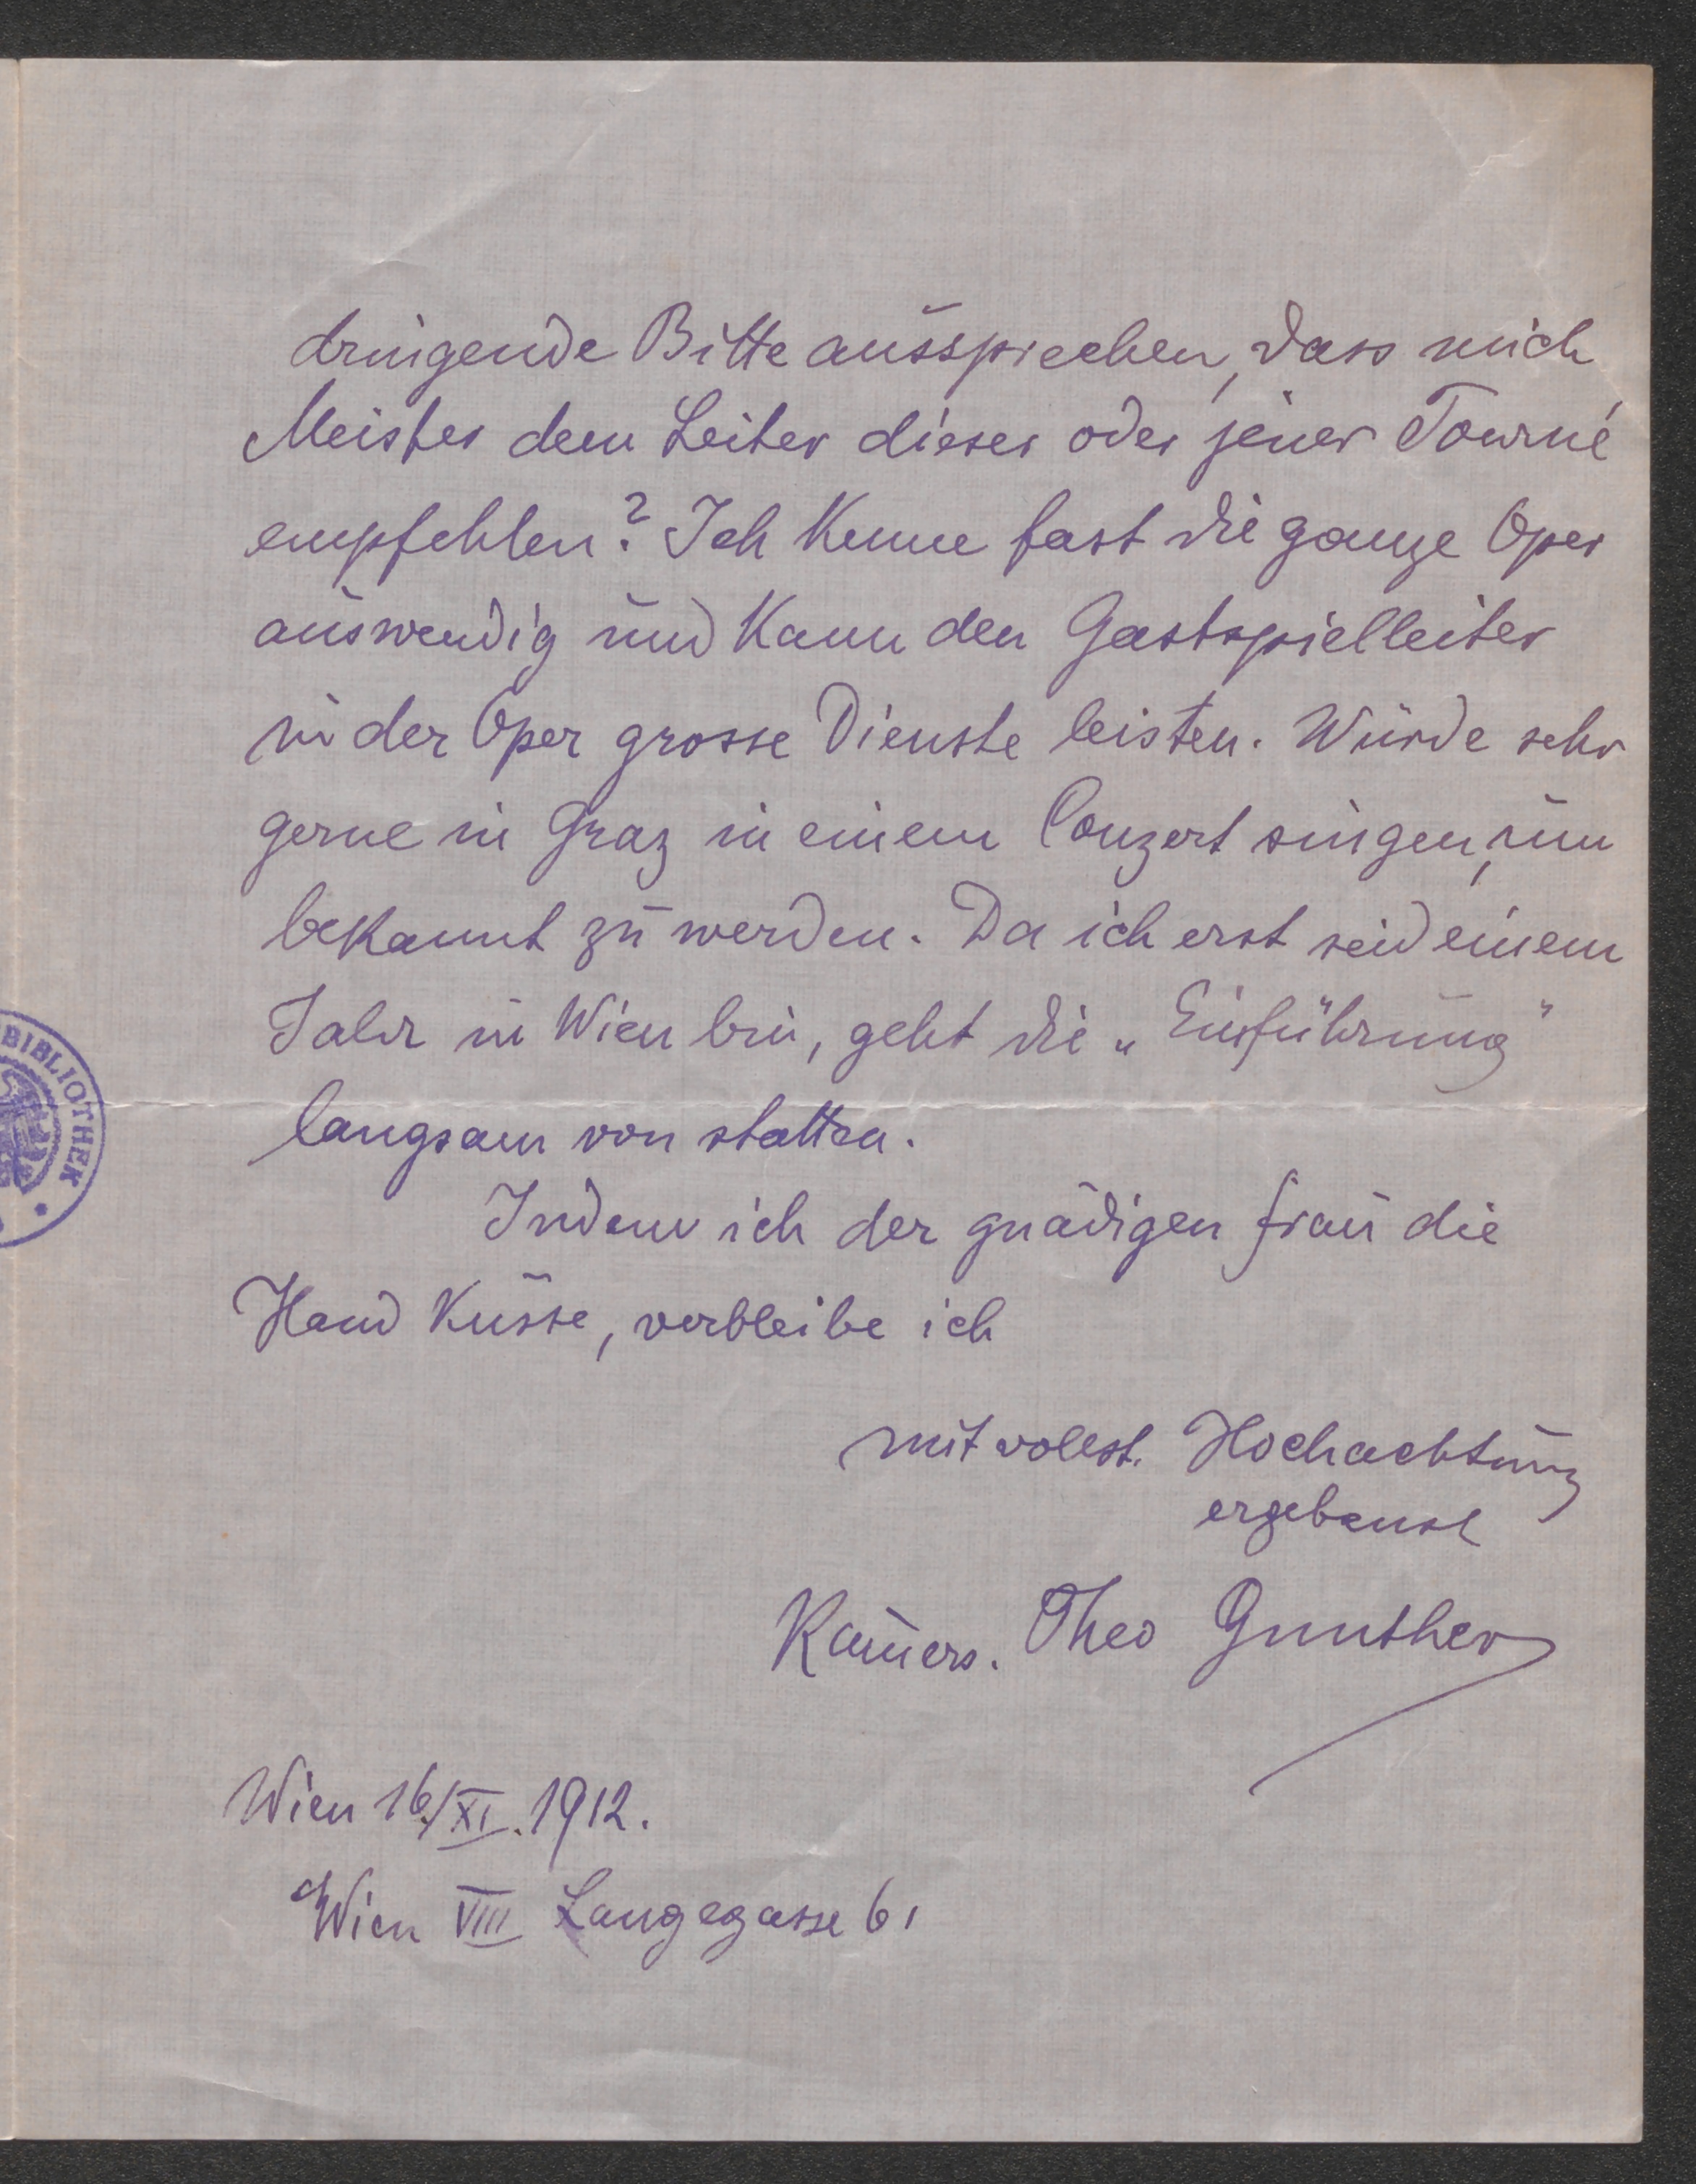 dringende Bitte aussprechen, dass mich
Meister dem Leiter dieser oder jener Tourné
empfehlen? Ich Kenne fast die ganze Oper
auswendig und Kann den Gastspielleiter
in der Oper grosse Dienste leisten. Würde sehr
gerne in Graz in einem Conzert singen, um
bekannt zu werden. Da ich erst seid einem
Jahr in Wien bin, geht die „Einführung"
langsam von statten.
BIBLIOTHEK
Indem ich der gnädigen Frau die
Hand Küsse, verbleibe ich
mit vollst. Hochachtung
ergebenst
Kam̄ers. Theo Gunther
Wien 16./XI. 1912.
Wien VIII Langegasse 61